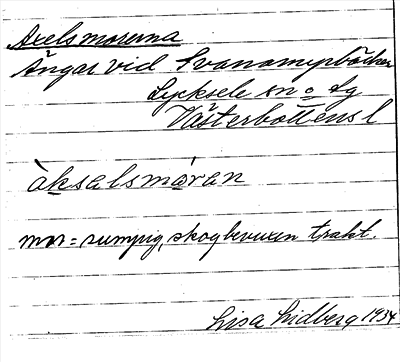 Axelsmorerna
Ängar vid Svanamyrbäcken
Lycksele sn o lg
Västerbottens l
àksalsmåran
mor = sumpig, skogbevuxen trakt.
Lisa Lidberg 1934